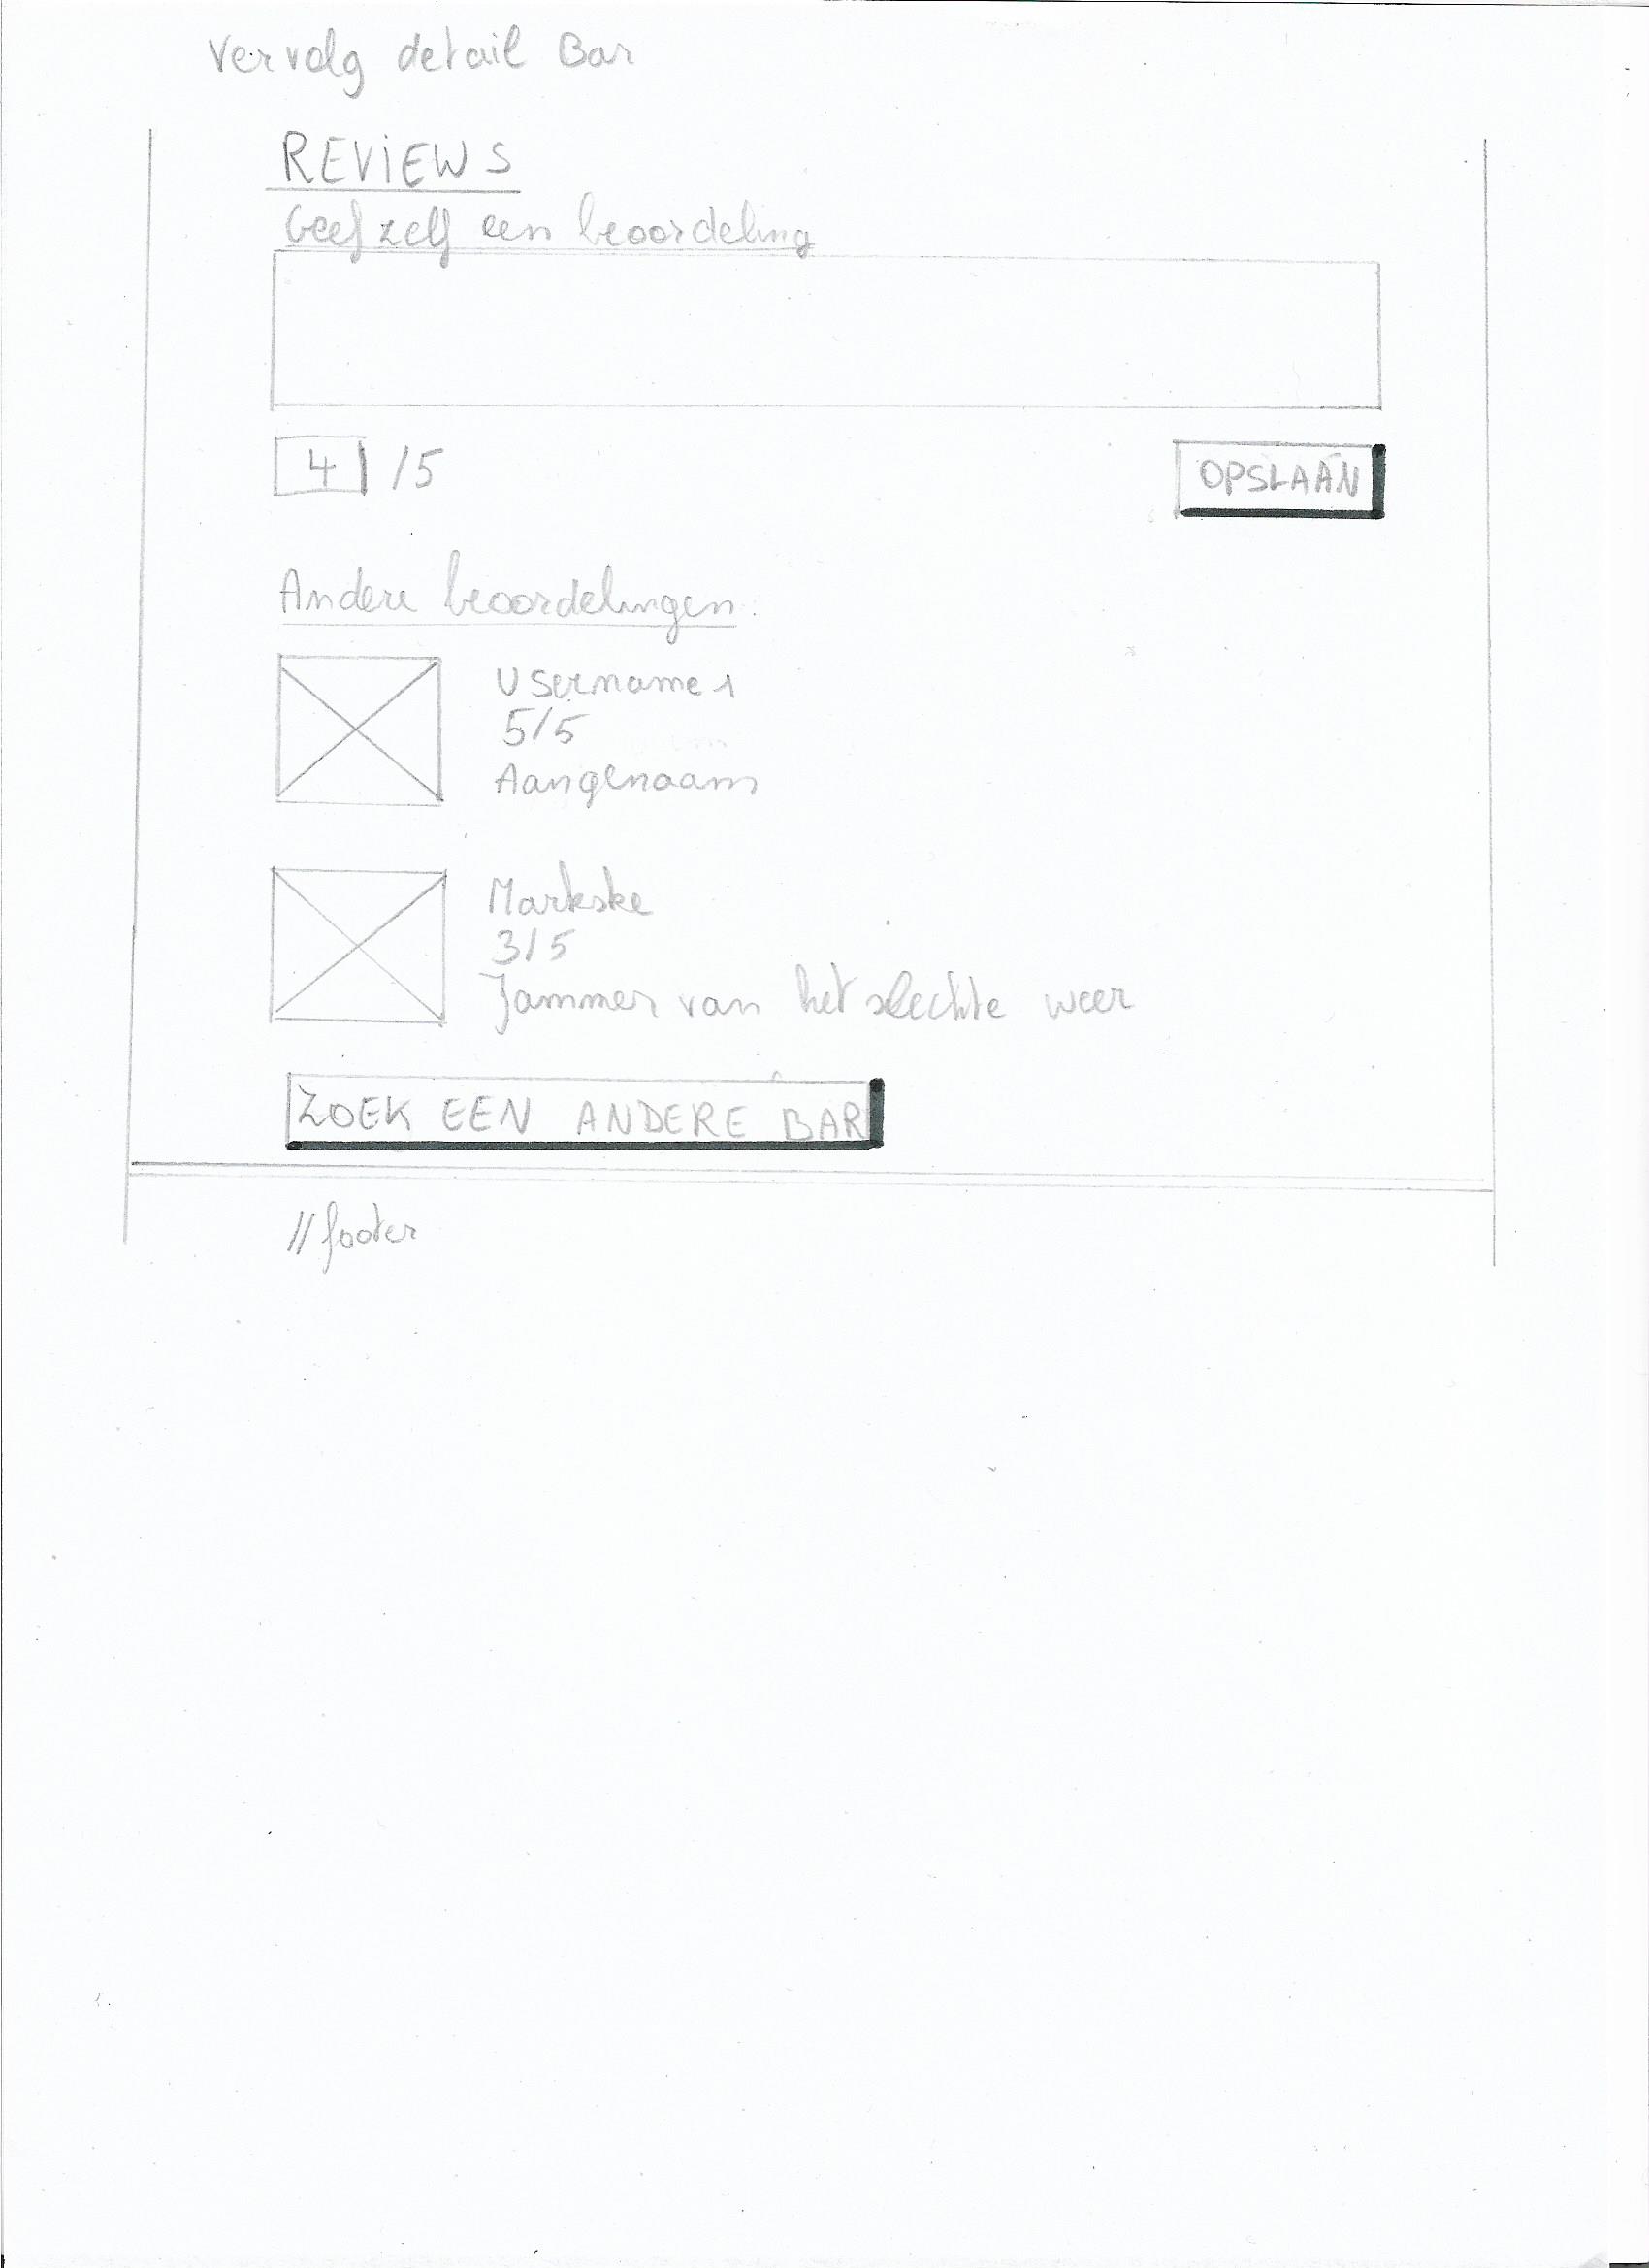 Vervolg detail Bar
REVIEWS
Geef zelf een beoordeling
4 /5
OPSLAAN
Andere beoordelingen
Username 1
5/5
Aangenaam
Markske
3/5
Jammer van het slechte weer
ZOEK EEN ANDERE BAR
// footer